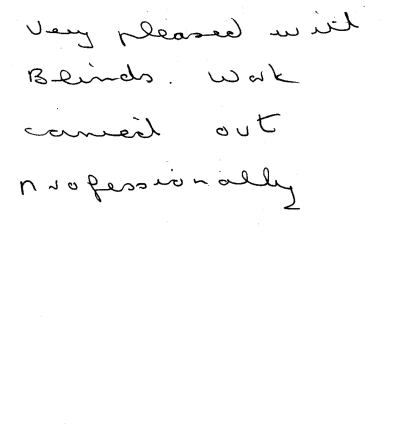 Very pleased with
Blinds. Work
carried out
professionally